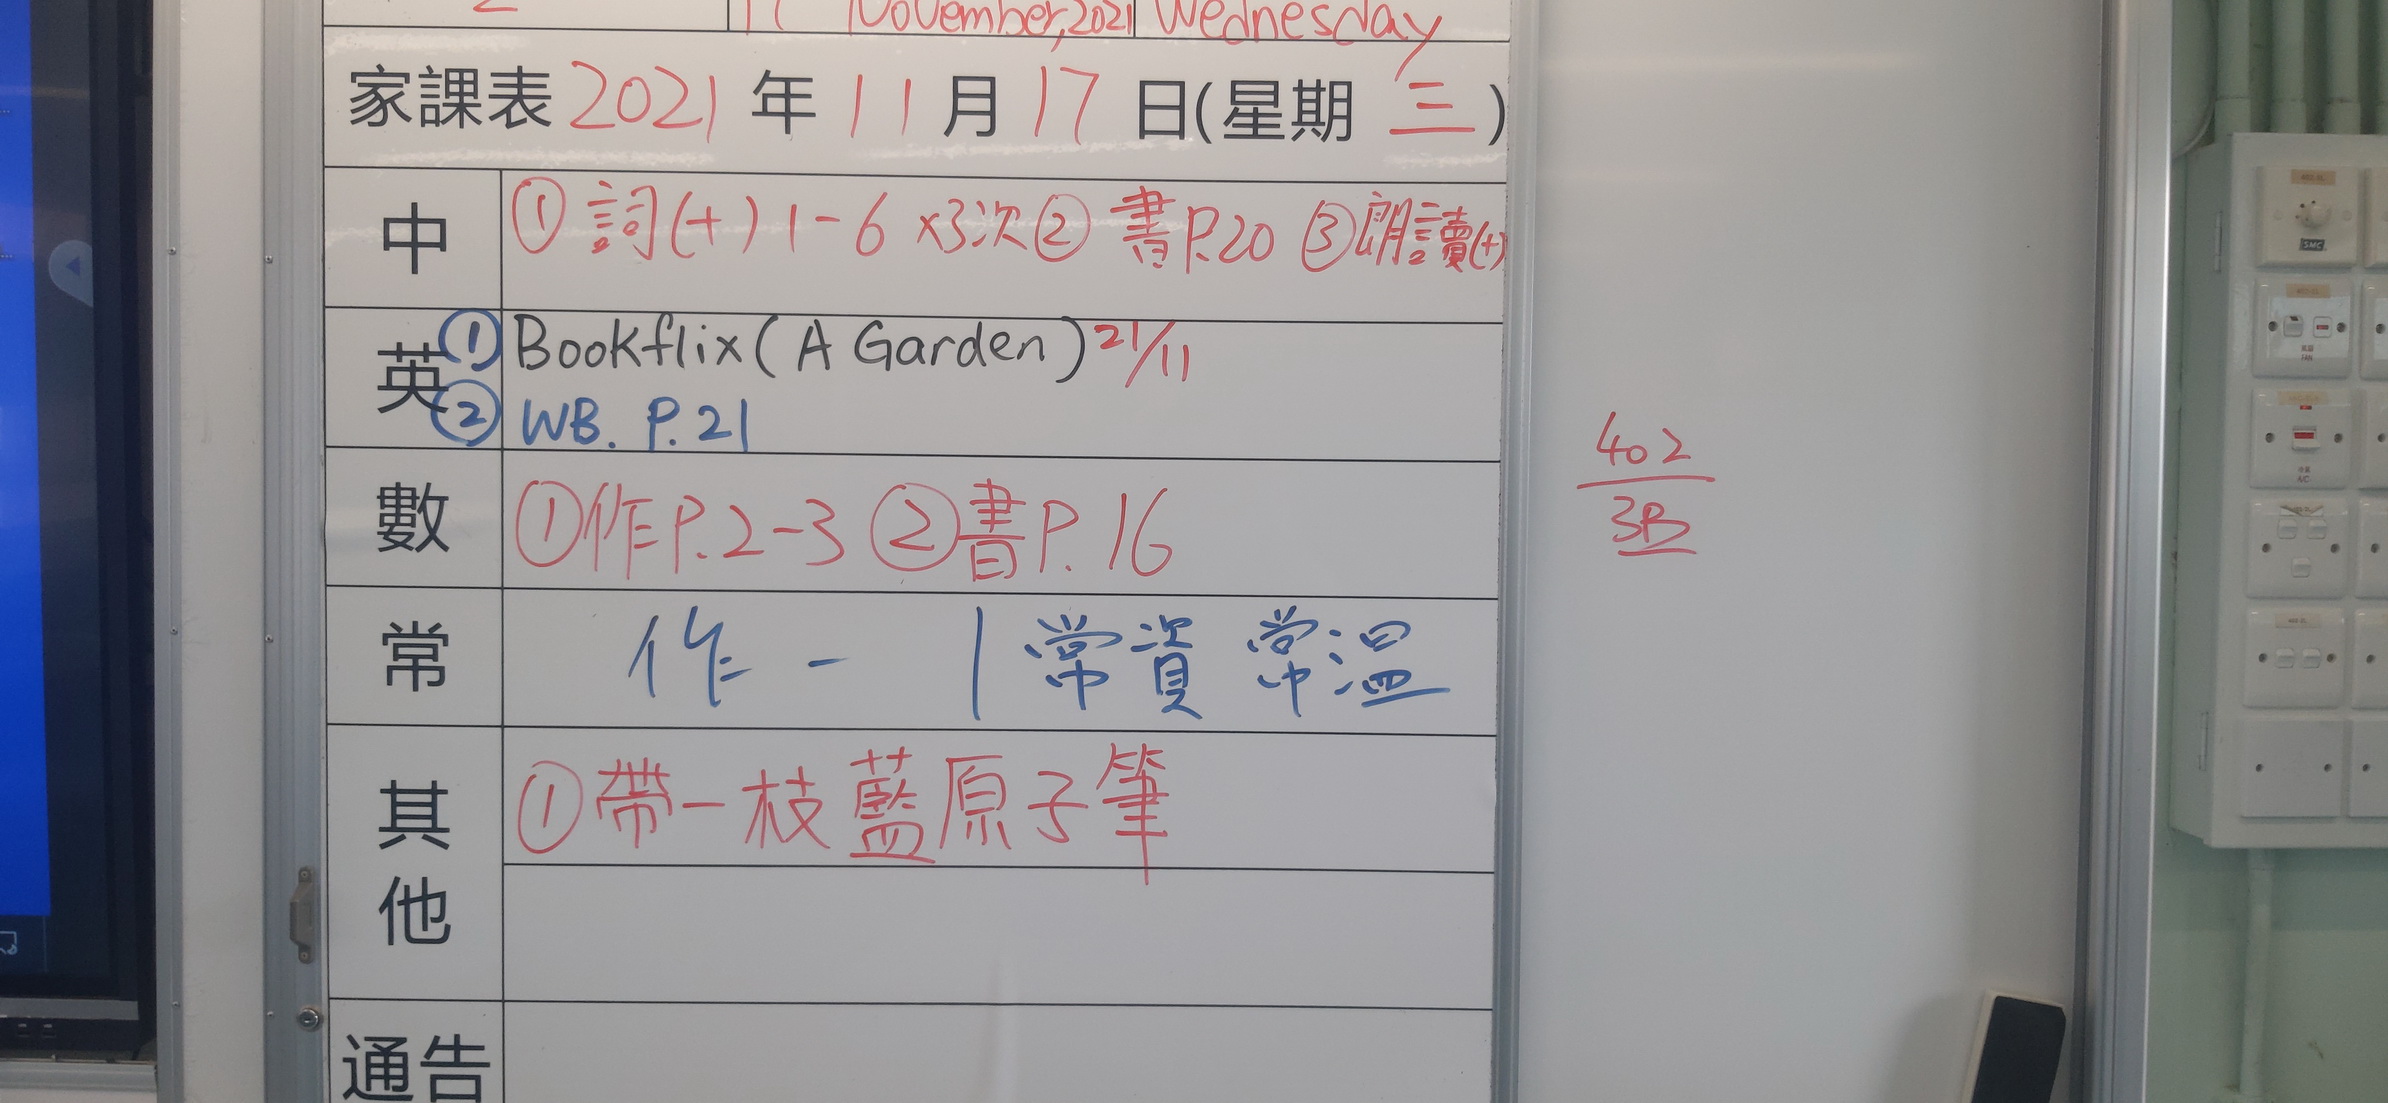 November, 2021 Wednesday
家課表 2021 年 11 月 17 日(星期 三)
中 ① 詞(十) 1-6 ×3次 ② 書P.20 ③ 朗讀(十)
英 ① Bookflix ( A Garden ) 21/11
② WB. P.21
數 ① 作P.2-3 ② 書P.16
常 作 - 1 常資 常溫
其他 ① 帶一枝藍原子筆
通告
402
3B
SMC
FAN
A/C